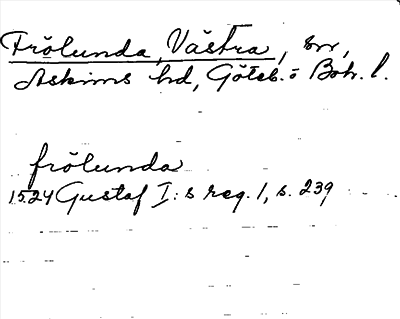 Frölunda, Västra, sn,
Askims hd, Göteb. o Boh. l.
frölunda
1524 Gustaf I:s reg. 1, s. 239